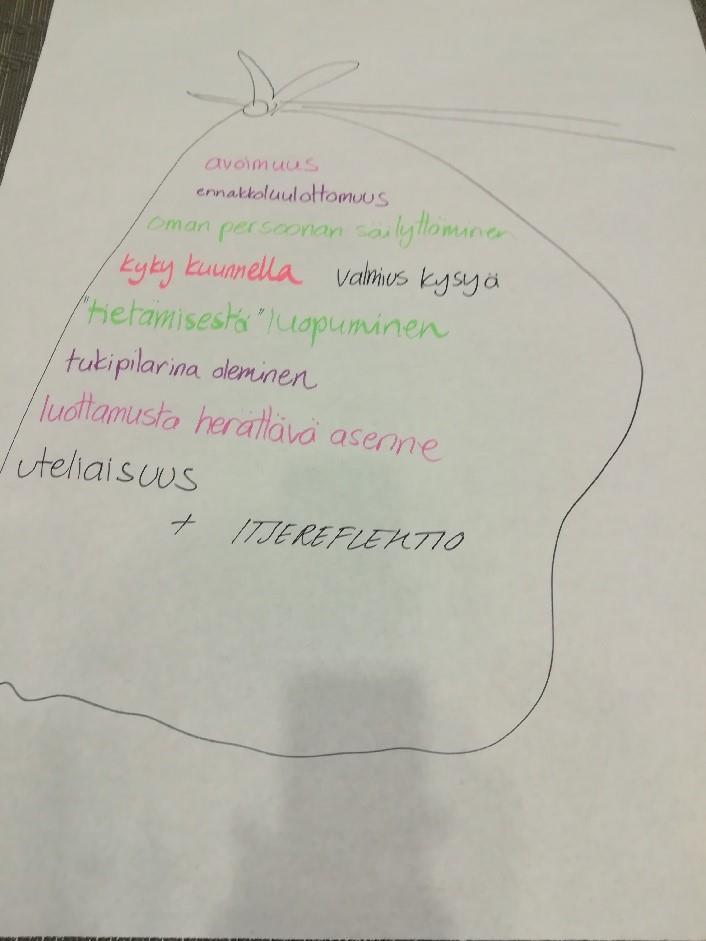 avoimuus
ennakkoluulottomuus
oman persoonan säilyttäminen
kyky kuunnella valmius kysyä
"tietämisestä" luopuminen
tukipilarina oleminen
luottamusta herättävä asenne
uteliaisuus
+ ITSEREFLEKTIO